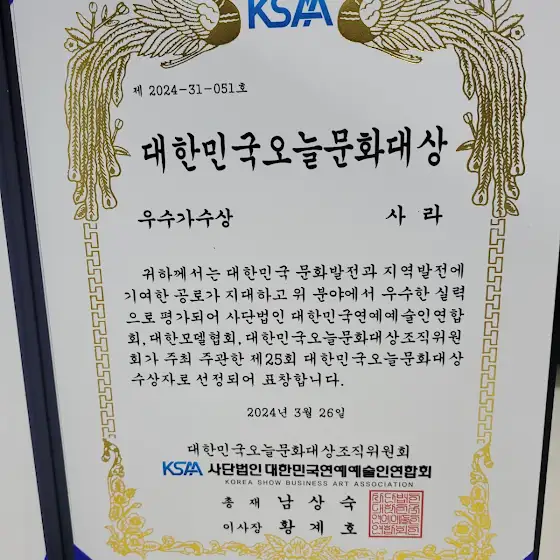 KSAA
제 2024-31-051호
대한민국오늘문화대상
우수가수상 사 라
귀하께서는 대한민국 문화발전과 지역발전에
기여한 공로가 지대하고 위 분야에서 우수한 실력
으로 평가되어 사단법인 대한민국연예예술인연합
회, 대한모델협회, 대한민국오늘문화대상조직위원
회가 주최 주관한 제25회 대한민국오늘문화대상
수상자로 선정되어 표창합니다.
2024년 3월 26일
대한민국오늘문화대상조직위원회
KSAA 사단법인 대한민국연예예술인연합회
KOREA SHOW BUSINESS ART ASSOCIATION
총 재 남 상 숙
이사장 황 계 호